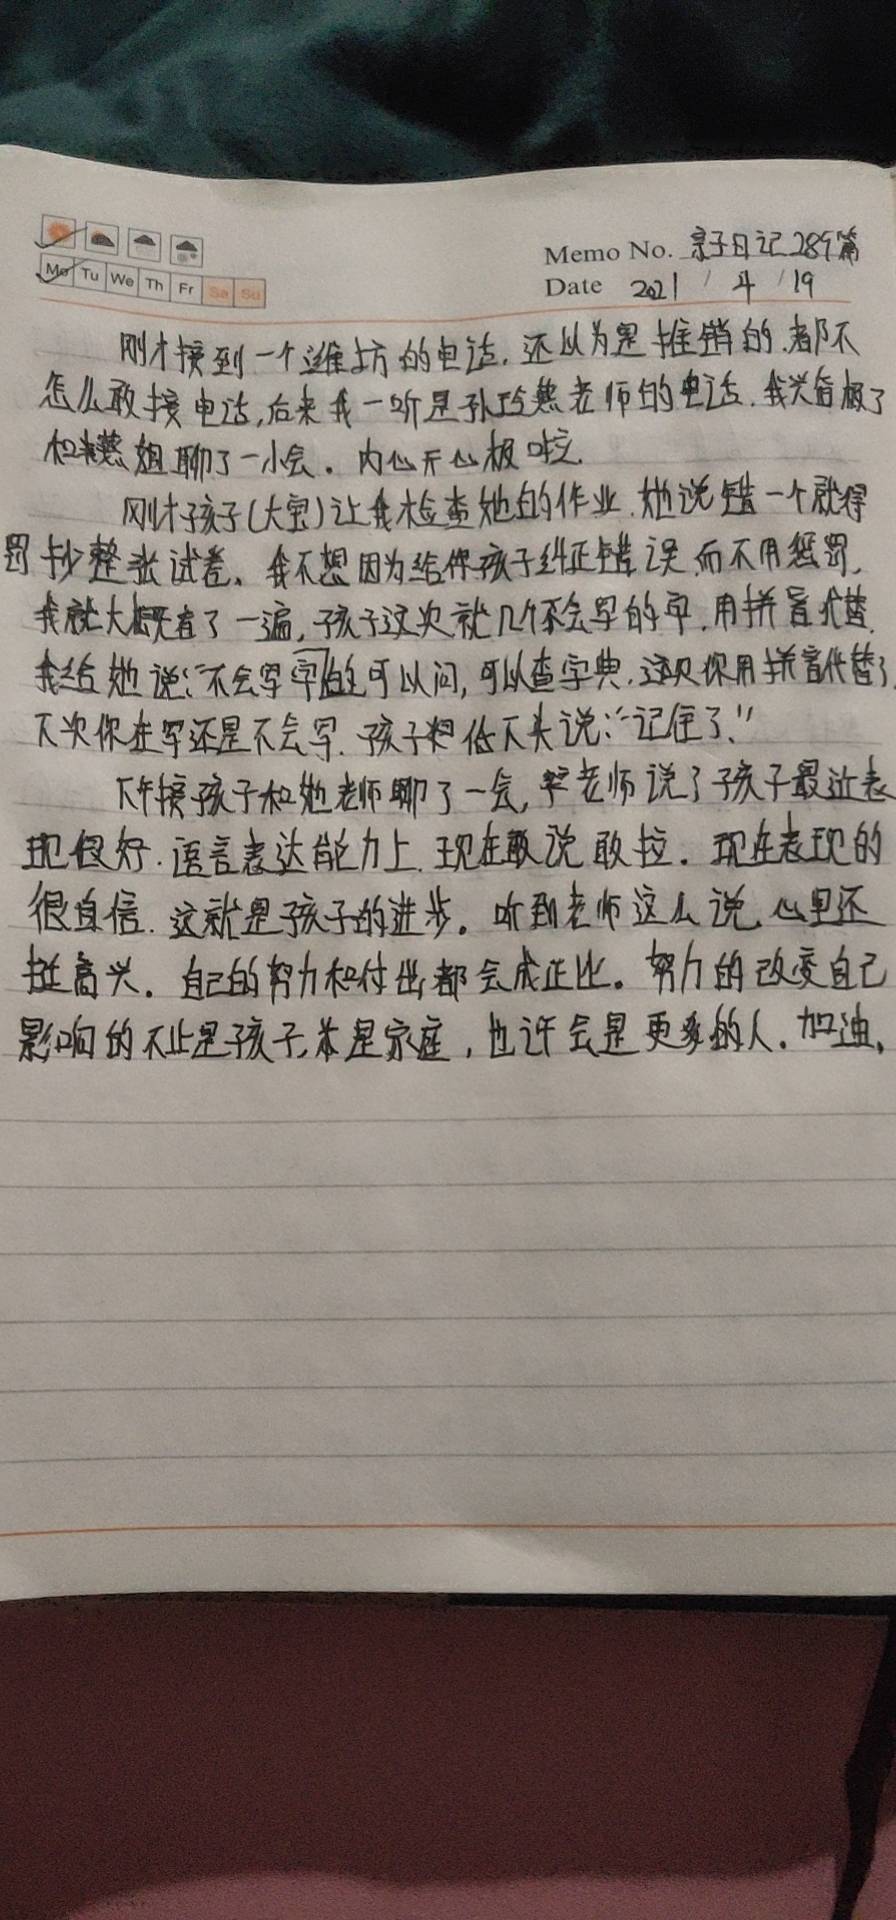 Memo No. 亲子日记289篇
Mo Tu We Th Fr Sa Su
Date 2021 / 4 / 19
刚才接到一个潍坊的电话.还以为是推销的.都不
怎么敢接电话,后来我一听是孙玲燕老师的电话.我兴奋极了
和燕姐聊了一小会。内心开心极啦
刚才孩子(大宝)让我检查她的作业.她说错一个就得
罚抄整张试卷。我不想因为给你孩子纠正错误而不用惩罚.
我就大概看了一遍,孩子这次就几个不会写的字.用拼音代替.
我给她说:“不会写字的可以问,可以查字典.这次你用拼音代替了
下次你在写还是不会写.孩子低下头说:“记住了.”
下午接孩子和她老师聊了一会,老师说了孩子最近表
现很好.语言表达能力上.现在敢说敢拉。现在表现的
很自信.这就是孩子的进步。听到老师这么说,心里还
挺高兴。自己的努力和付出都会成正比。努力的改变自己
影响的不止是孩子,是家庭,也许会是更多的人。加油。